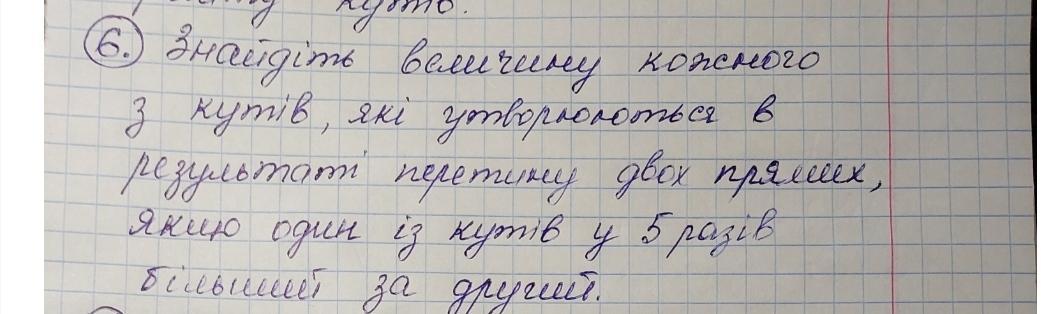 кутів.
6. Знайдіть величину кожного
з кутів, які утворюються в
результаті перетину двох прямих,
якщо один із кутів у 5 разів
більший за другий.